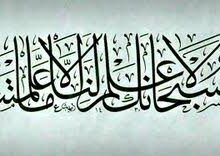 سبحانك لا علم لنا إلا ما علمتنا